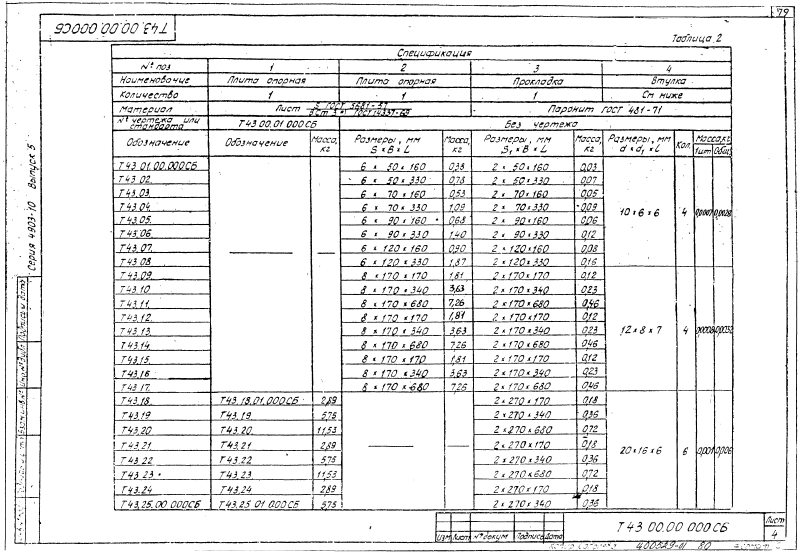 79
Т43.00.00.000СБ
Таблица 2
Спецификация
№ поз 1 2 3 4
Наименование Плита опорная Плита опорная Прокладка Втулка
Количество 1 1 1 См ниже
Материал Лист Паронит ГОСТ 481-71
№ чертежа или стандарта Т43 00.01 000СБ Без чертежа
Обозначение Обозначение Масса, кг Размеры, мм S×B×L Масса, кг Размеры, мм S₁×B×L Масса, кг Размеры, мм d×d₁×L Кол. Масса, кг 1шт Общ.
Т43.01.00.000СБ 6×50×160 0,38 2×50×160 0,03
Т43.02. 6×50×330 0,78 2×50×330 0,07
Т43.03. 6×70×160 0,53 2×70×160 0,05
Т43.04. 6×70×330 1,09 2×70×330 0,09
Т43.05. 6×90×160 0,68 2×90×160 0,06
10×6×6 4 0,0007 0,0028
Т43.06. 6×90×330 1,40 2×90×330 0,12
Т43.07. 6×120×160 0,90 2×120×160 0,08
Т43.08 6×120×330 1,87 2×120×330 0,16
Т43.09. 8×170×170 1,81 2×170×170 0,12
Т43.10 8×170×340 3,63 2×170×340 0,23
Т43.11. 8×170×680 7,26 2×170×680 0,46
Т43.12. 8×170×170 1,81 2×170×170 0,12
Т43.13. 8×170×340 3,63 2×170×340 0,23
12×8×7 4 0,0008 0,0032
Т43.14. 8×170×680 7,26 2×170×680 0,46
Т43.15. 8×170×170 1,81 2×170×170 0,12
Т43.16 8×170×340 3,63 2×170×340 0,23
Т43.17. 8×170×680 7,26 2×170×680 0,46
Т43.18. Т43.18.01.000СБ 2,89 2×270×170 0,18
Т43.19 Т43.19. 5,75 2×270×340 0,36
Т43.20 Т43.20. 11,53 2×270×680 0,72
Т43.21. Т43.21 2,89 2×270×170 0,18
20×16×6 6 0,001 0,006
Т43.22 Т43.22 5,75 2×270×340 0,36
Т43.23 Т43.23. 11,53 2×270×680 0,72
Т43.24 Т43.24 2,89 2×270×170 0,18
Т43.25.00 000СБ Т43.25 01 000СБ 5,75 2×270×340 0,36
Серия 4.903-10 Выпуск 5
Т43 00.00 000СБ
Лист
4
Изм Лист № докум Подпись Дата
80